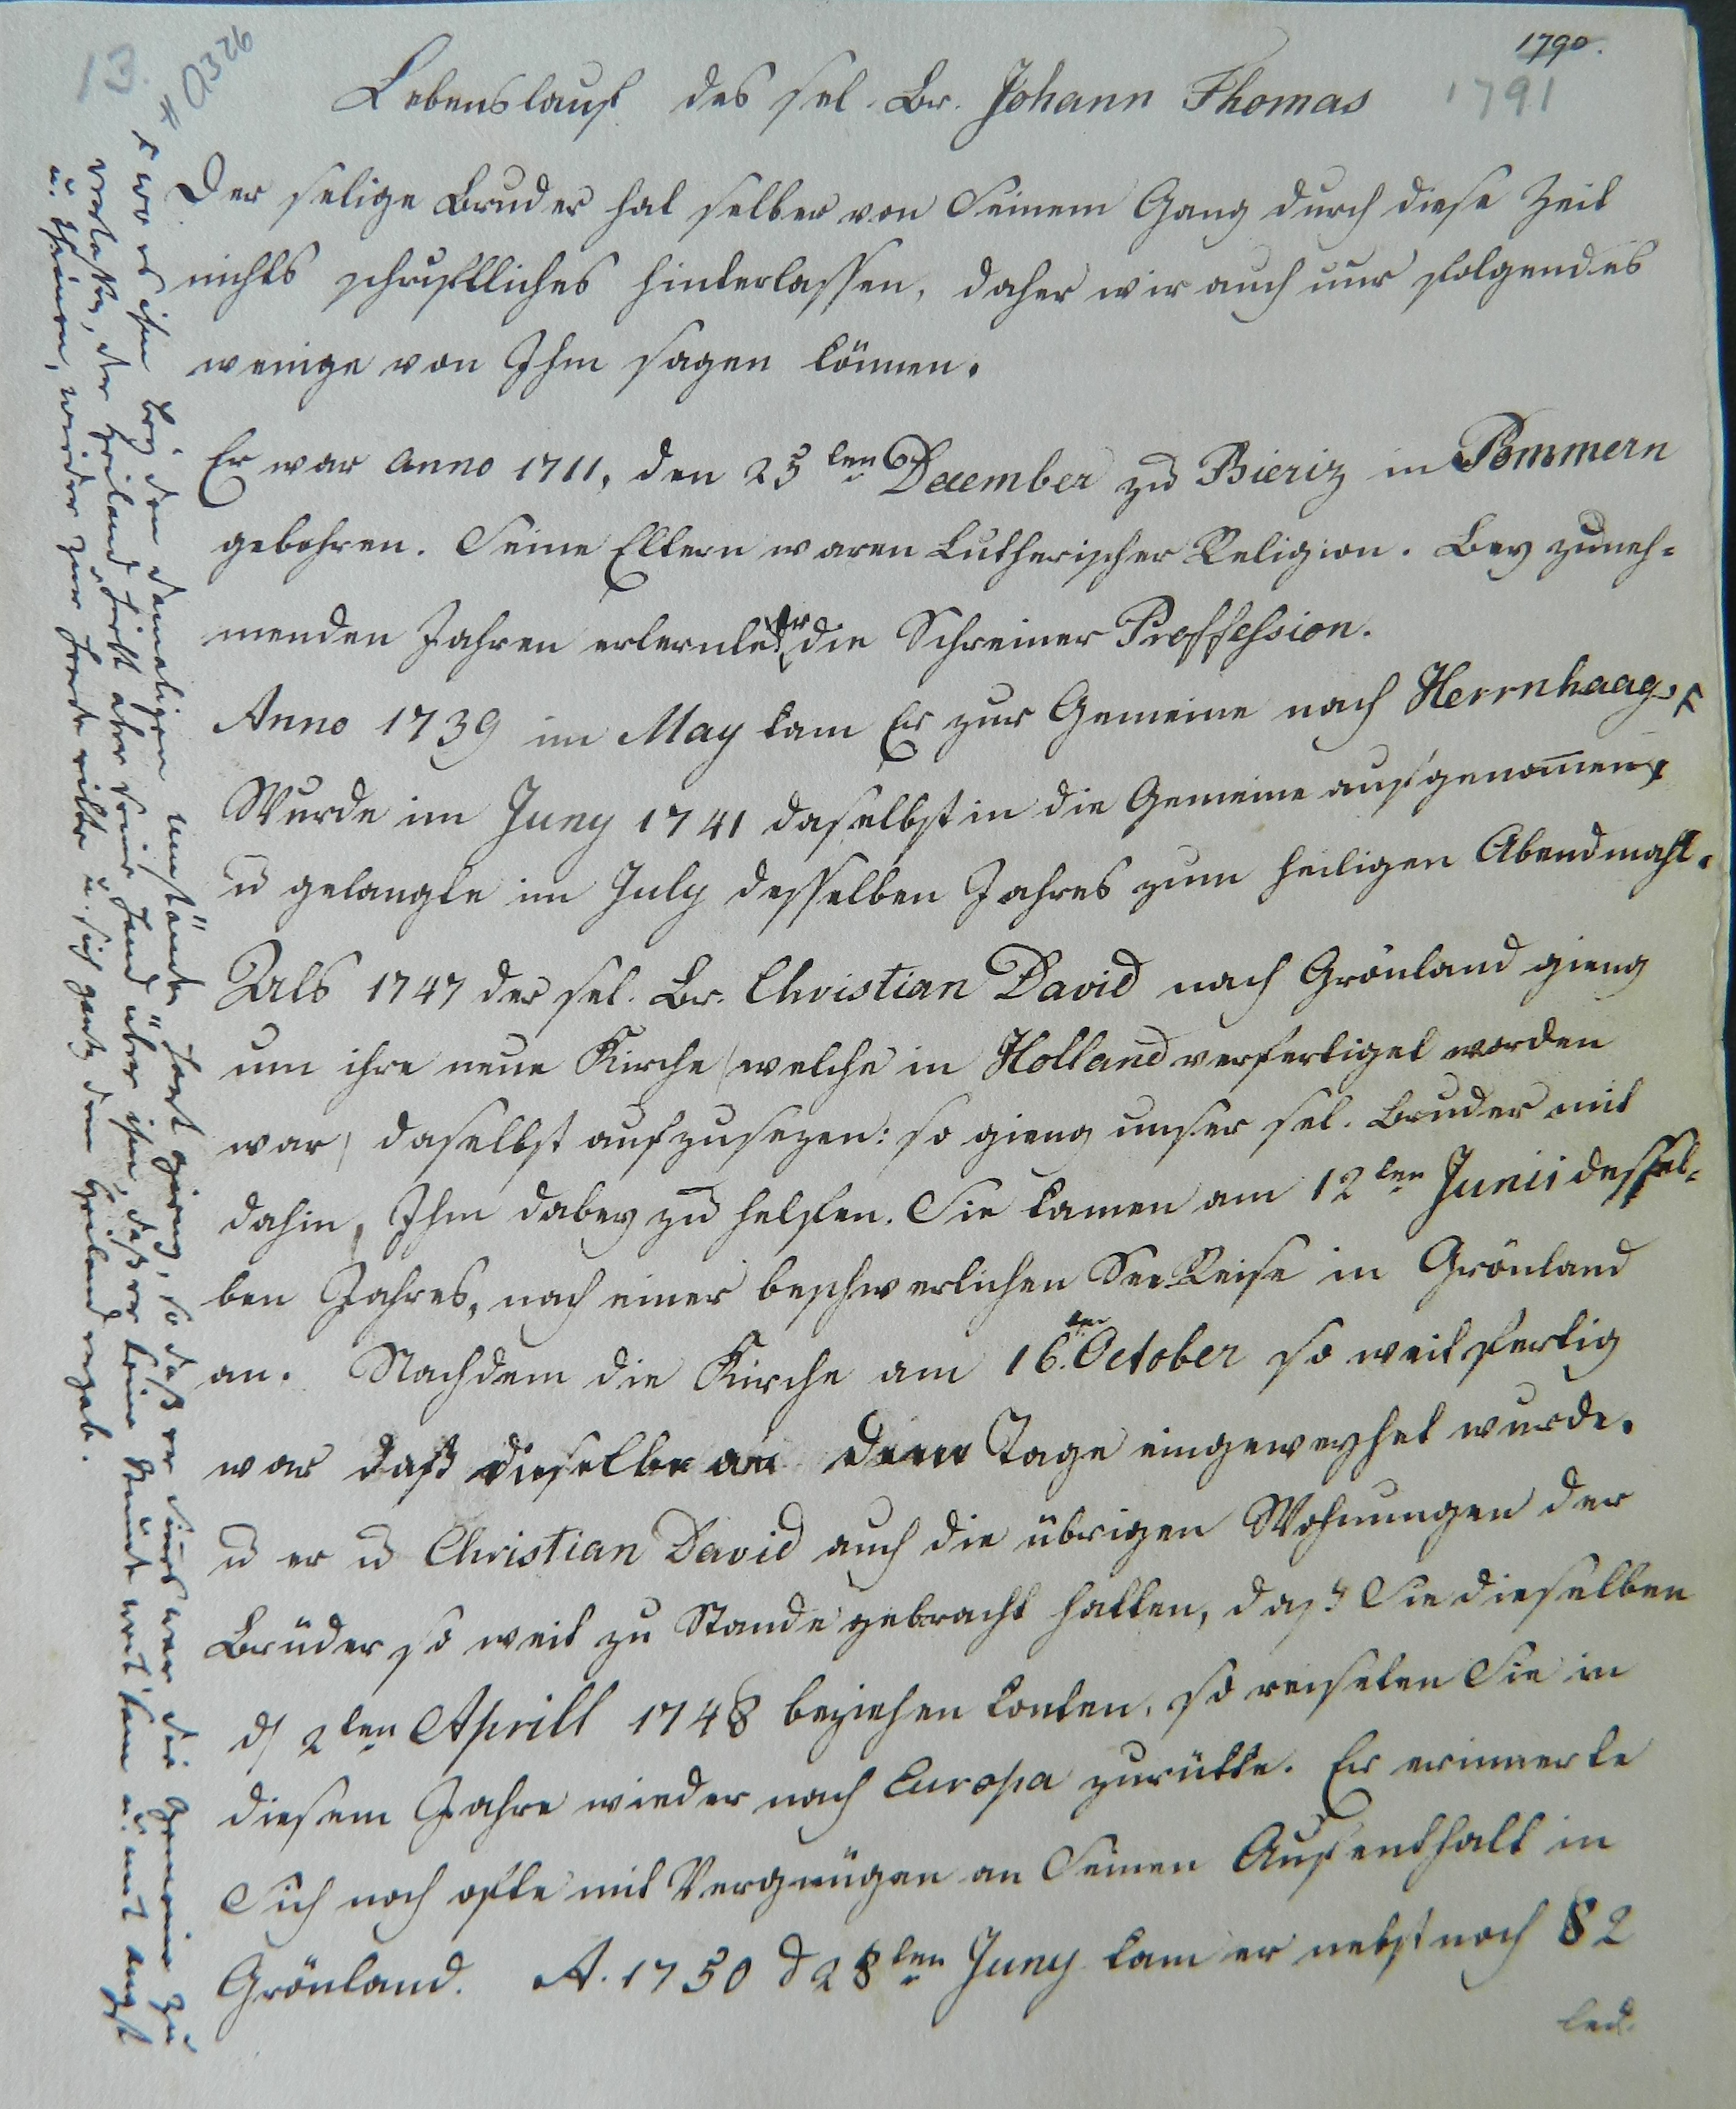 1790.
13.
# A 326
Lebenslauf des sel. Br. Johann Thomas
1791
Der selige Bruder hat selber von Seinem Gang durch diese Zeit
nichts schriftliches hinterlassen, daher wir auch nur folgendes
wenige von Ihm sagen können.
Er war anno 1711, den 25ten December zu Bieriz in Pommern
gebohren. Seine Eltern waren Lutherischer Religion. Bey zuneh-
menden Jahren erlernte er die Schreiner Proffession.
Anno 1739 im May kam Er zur Gemeine nach Herrnhaag, #
Wurde im Juny 1741 daselbst in die Gemeine aufgenom̄en,
u gelangte im July desselben Jahres zum heiligen Abendmahl.
Als 1747 der sel. Br. Christian David nach Grönland gieng
um ihre neue Kirche (welche in Holland verfertiget worden
war) daselbst aufzusezen: so gieng unser sel. Bruder mit
dahin, Ihm dabey zu helffen. Sie kamen am 12ten Junii dessel-
ben Jahres, nach einer beschwerlichen See Reise in Grönland
an. Nachdem die Kirche am 16ten October so weit fertig
war daß dieselbe an dem Tage eingeweyhet wurde.
u er u Christian David auch die übrigen Wohnungen der
Brüder so weit zu Stande gebracht hatten, daß Sie dieselben
d 2ten Aprill 1748 beziehen konten, so reiseten Sie in
diesem Jahre wieder nach Europa zurükke. Er erinnerte
Sich noch ofte mit Vergnügen an Seinen Aufenthalt in
Grönland. A. 1750 d 28ten Juny kam er nebst noch 82
led.
# wo es ihm bey den damaligen umständen hart gieng, so daß er Sin̄s war die Gemeine zu
verlassen, der Heiland hielt aber seine Hand über ihm, daß er keine Stunde weit kam u. mit angst
u. thränen, wieder zur Heerde eilte u. sich gantz dem Heiland ergab.